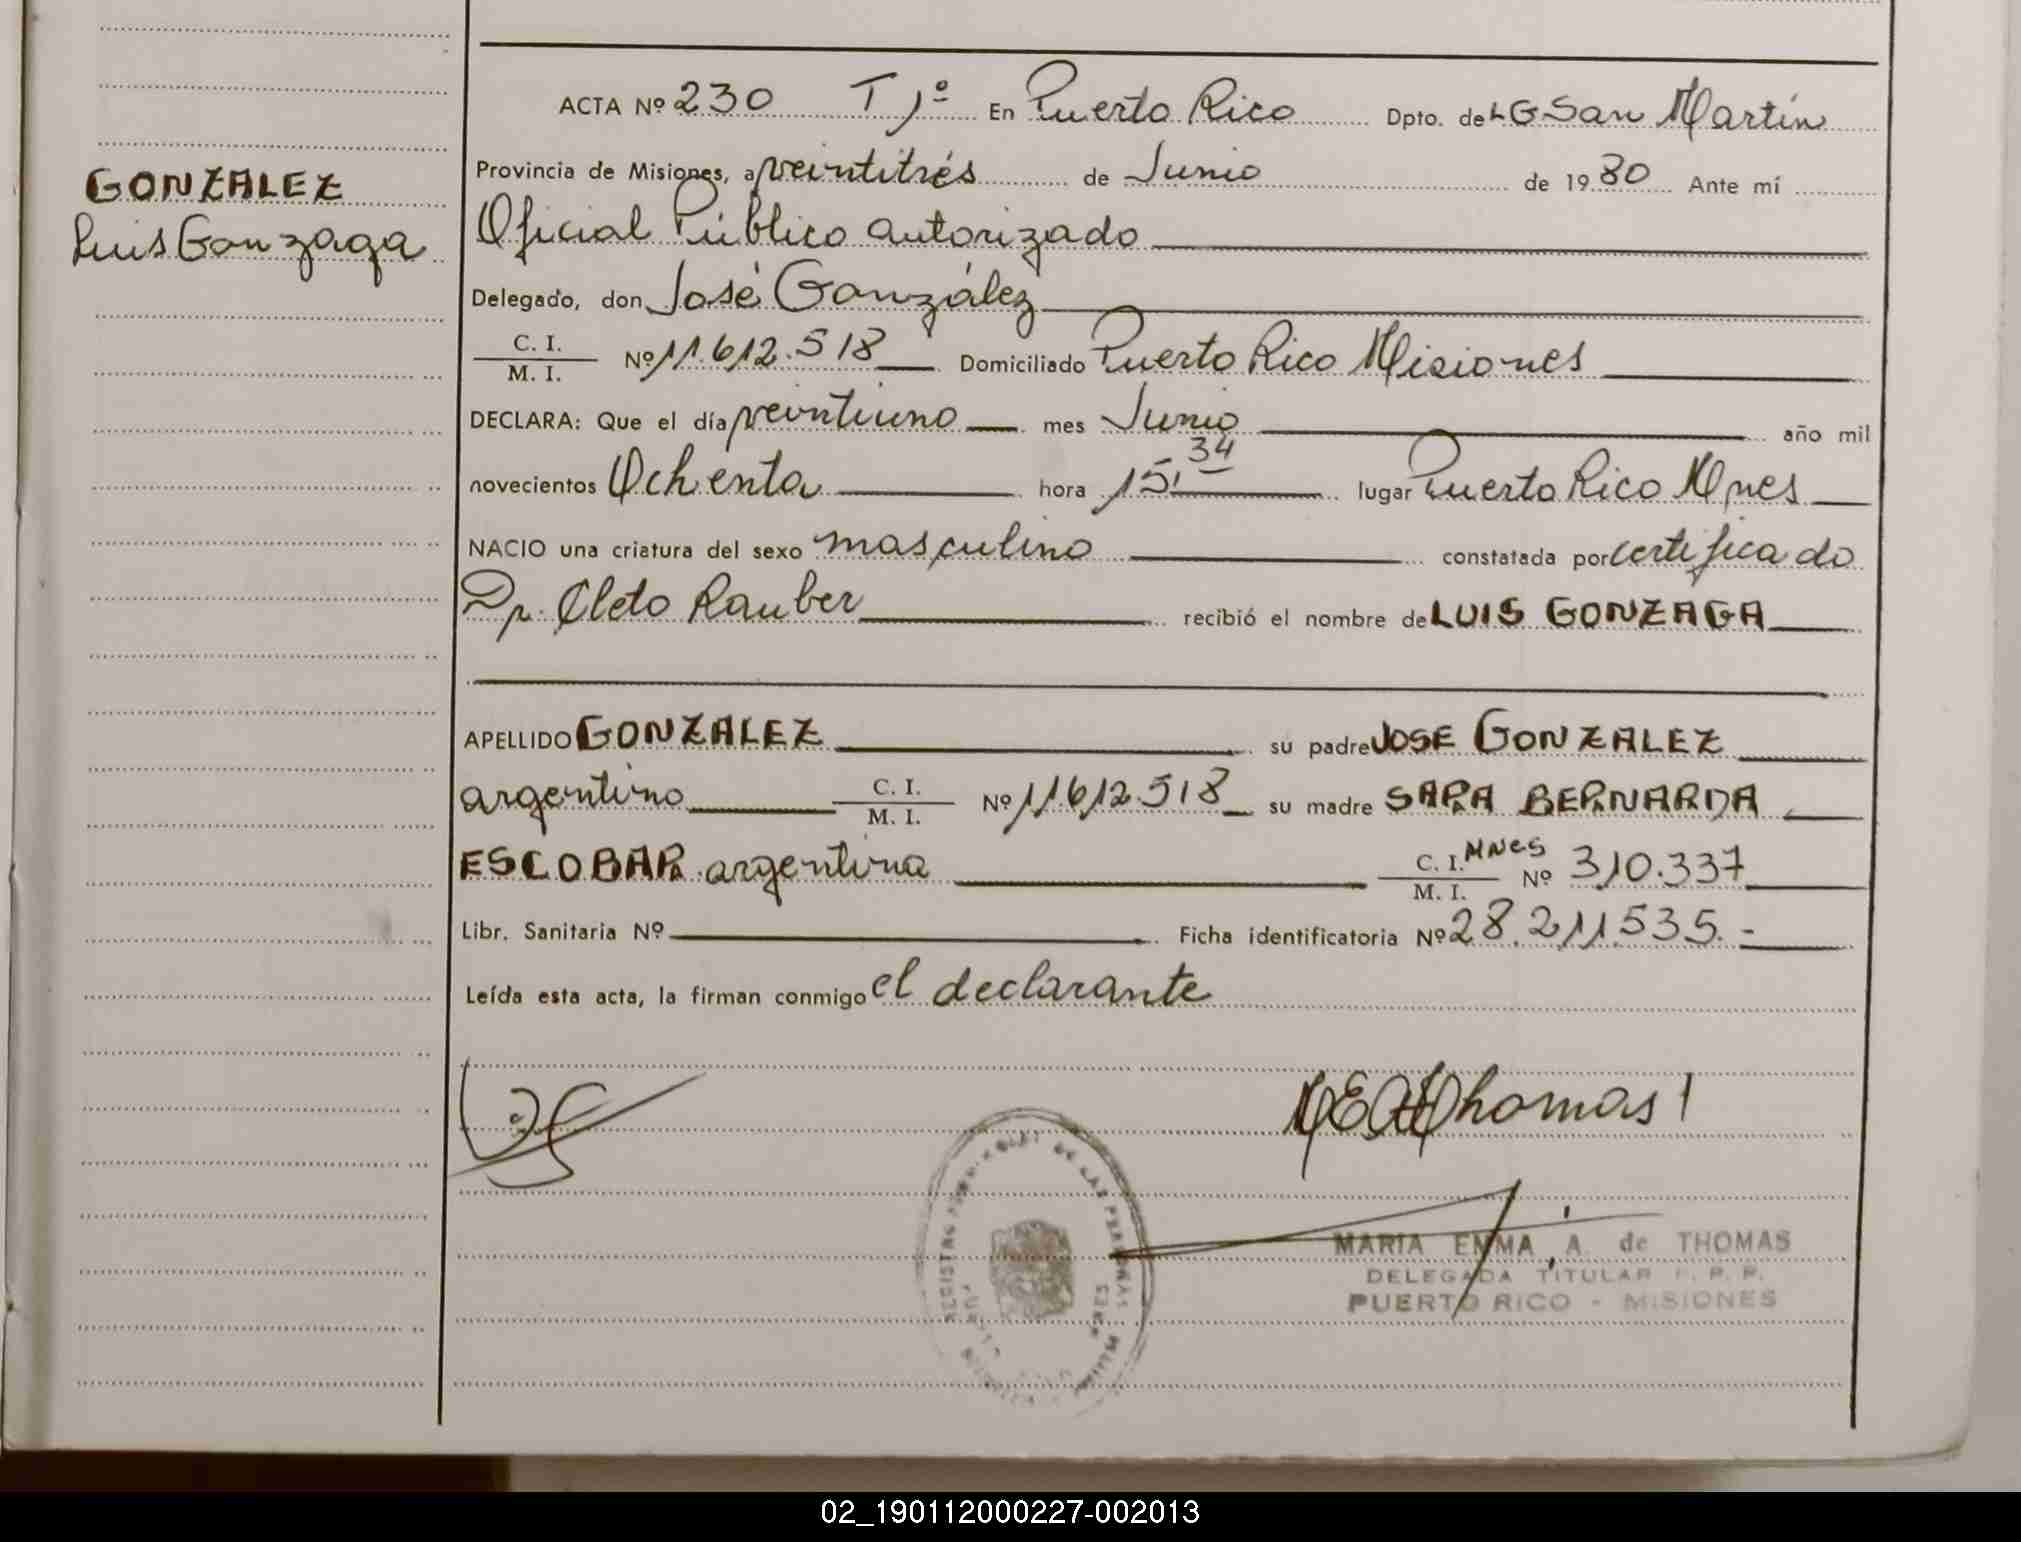 GONZALEZ
Luis Gonzaga
ACTA Nº 230 T 1º En Puerto Rico Dpto. de LG San Martín
Provincia de Misiones, a veintitrés de Junio de 1980 Ante mí
Oficial Público autorizado
Delegado, don José González
C. I.
M. I. Nº 11.612.518 Domiciliado Puerto Rico Misiones
DECLARA: Que el día veintiuno mes Junio año mil
novecientos Ochenta hora 15,34 lugar Puerto Rico Mnes
NACIO una criatura del sexo masculino constatada por certificado
Dr. Cleto Rauber recibió el nombre de LUIS GONZAGA
APELLIDO GONZALEZ su padre JOSE GONZALEZ
argentino C. I.
M. I. Nº 11.612.518 su madre SARA BERNARDA
ESCOBAR argentina C. I. MNES
M. I. Nº 310.337
Libr. Sanitaria Nº Ficha identificatoria Nº 28.211.535.-
Leída esta acta, la firman conmigo el declarante
MEA Thomas
MARIA EMMA A. de THOMAS
DELEGADA TITULAR R. P. P.
PUERTO RICO - MISIONES
02_190112000227-002013